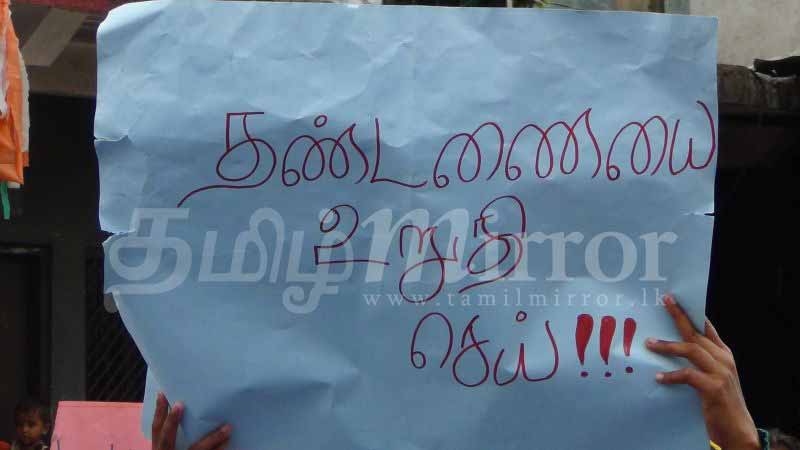 தண்டணையை
உறுதி
செய் !!!
தமிழ்mirror
www.tamilmirror.lk